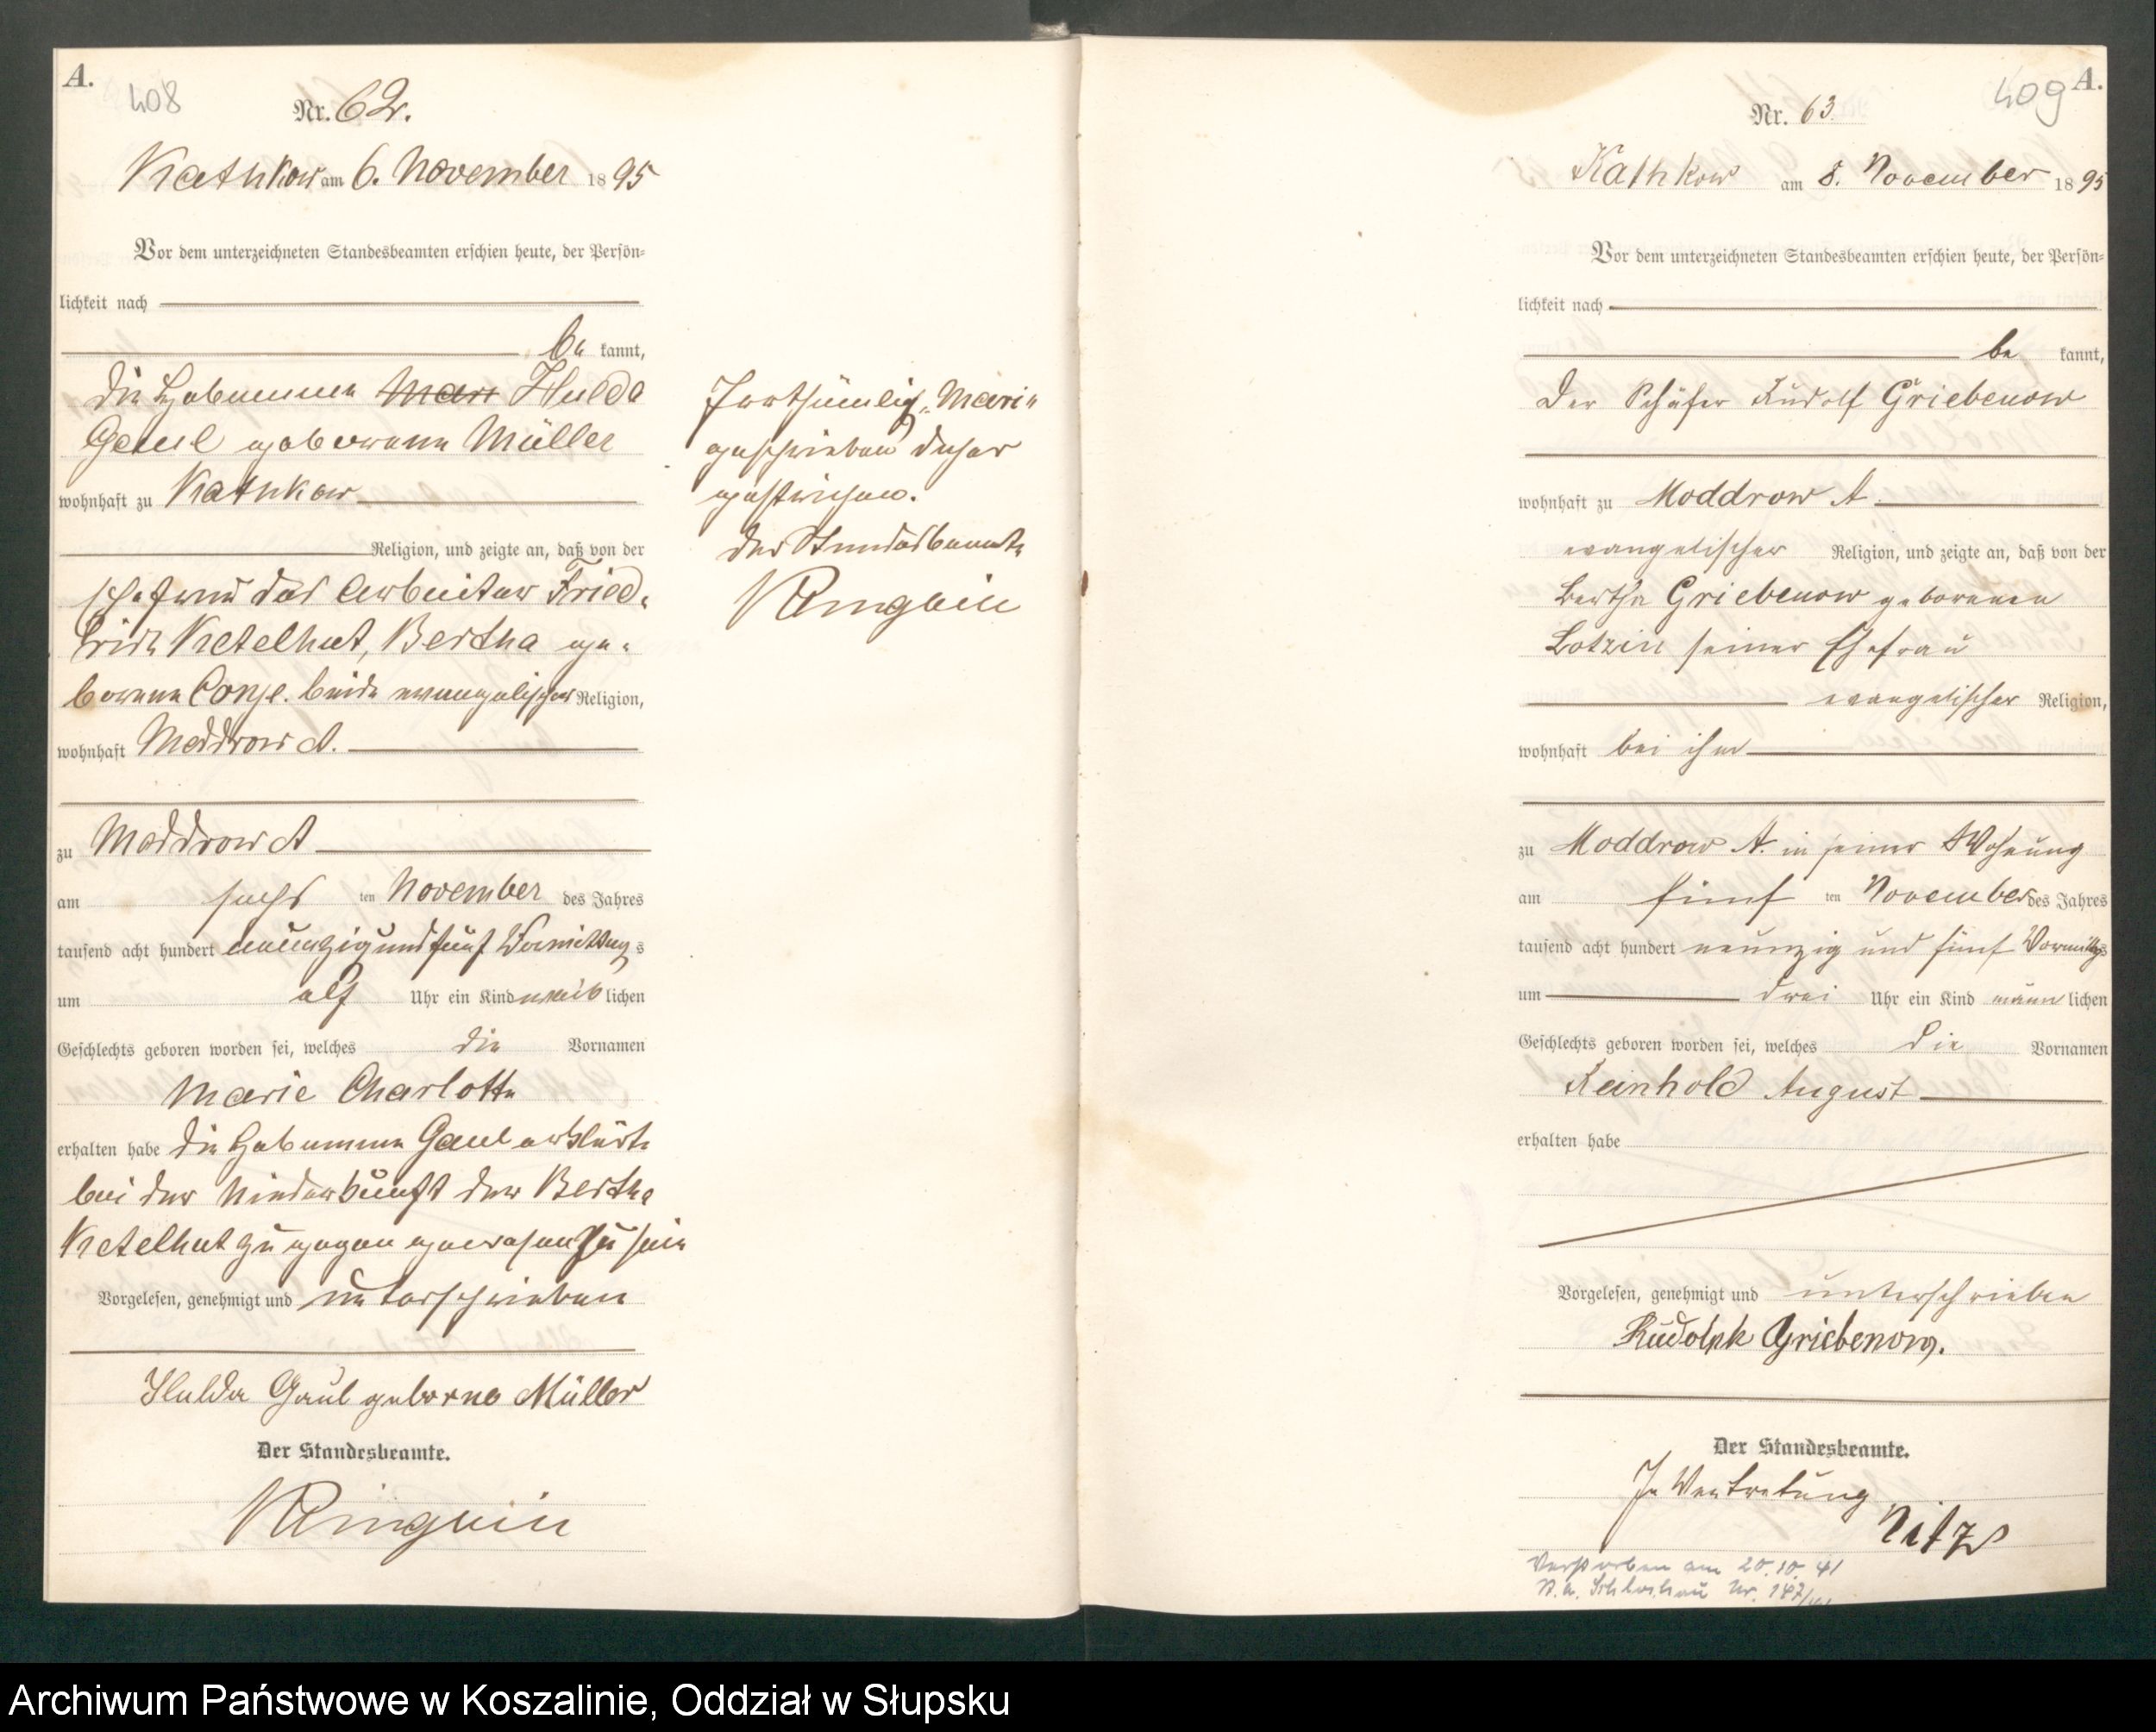 A.
408
Nr. 62.
Kathkow am 6. November 1895
Vor dem unterzeichneten Standesbeamten erschien heute, der Persön-
lichkeit nach
be kannt,
die Hebamme Mari Hulda
Gaul geborene Müller
wohnhaft zu Kathkow
Religion, und zeigte an, daß von der
Ehefrau des Arbeiter Fried-
rich Ketelhut, Bertha ge-
borene Conje. beide evangelischer Religion,
wohnhaft Moddrow A.
zu Moddrow A
am sechs ten November des Jahres
tausend acht hundert neunzig und fünf Vormittags
um elf Uhr ein Kind weib lichen
Geschlechts geboren worden sei, welches die Vornamen
Marie Charlotte
erhalten habe die Hebamme Gaul erklärte
bei der Niederkunft der Bertha
Ketelhut zugegen gewesen zu sein
Vorgelesen, genehmigt und unterschrieben
Hulda Gaul geborne Müller
Der Standesbeamte.
Irrthümlich „Mari"
geschrieben daher
gestrichen.
Der Standesbeamte
A.
409
Nr. 63.
Kathkow am 8. November 1895
Vor dem unterzeichneten Standesbeamten erschien heute, der Persön-
lichkeit nach
be kannt,
Der Schäfer Rudolf Griebenow
wohnhaft zu Moddrow A.
evangelischer Religion, und zeigte an, daß von der
Bertha Griebenow geborenen
Lotzin seiner Ehefrau
evangelischer Religion,
wohnhaft bei ihm
zu Moddrow A. in seiner Wohnung
am fünf ten November des Jahres
tausend acht hundert neunzig und fünf Vormittags
um drei Uhr ein Kind männ lichen
Geschlechts geboren worden sei, welches die Vornamen
Reinhold August
erhalten habe
Vorgelesen, genehmigt und unterschrieben
Rudolph Griebenow.
Der Standesbeamte.
In Vertretung
Nitz
Verstorben am 20.10.41
St. A. Schlochau Nr. 147/41
Archiwum Państwowe w Koszalinie, Oddział w Słupsku